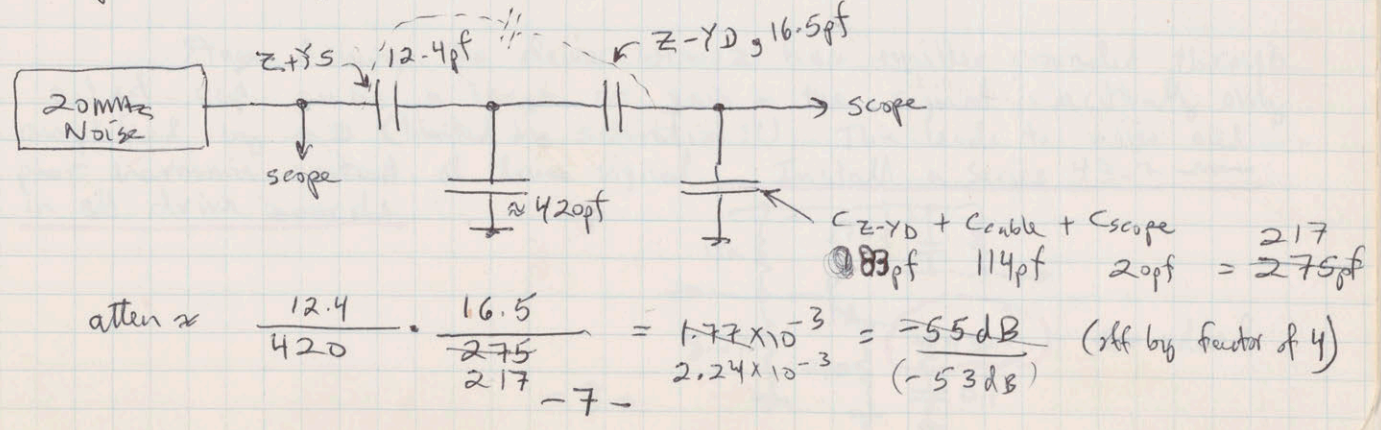 Z+YS 12.4pf
Z-YD, 16.5pf
20MHz
Noise
scope
scope
≈420pf
C_Z-YD + Ccable + Cscope
83pf 114pf 20pf = 275pf
217
atten ≈ 12.4/420 · 16.5/275 = 1.77×10^-3 = -55dB (off by factor of 4)
217
2.24×10^-3
(-53dB)
-7-